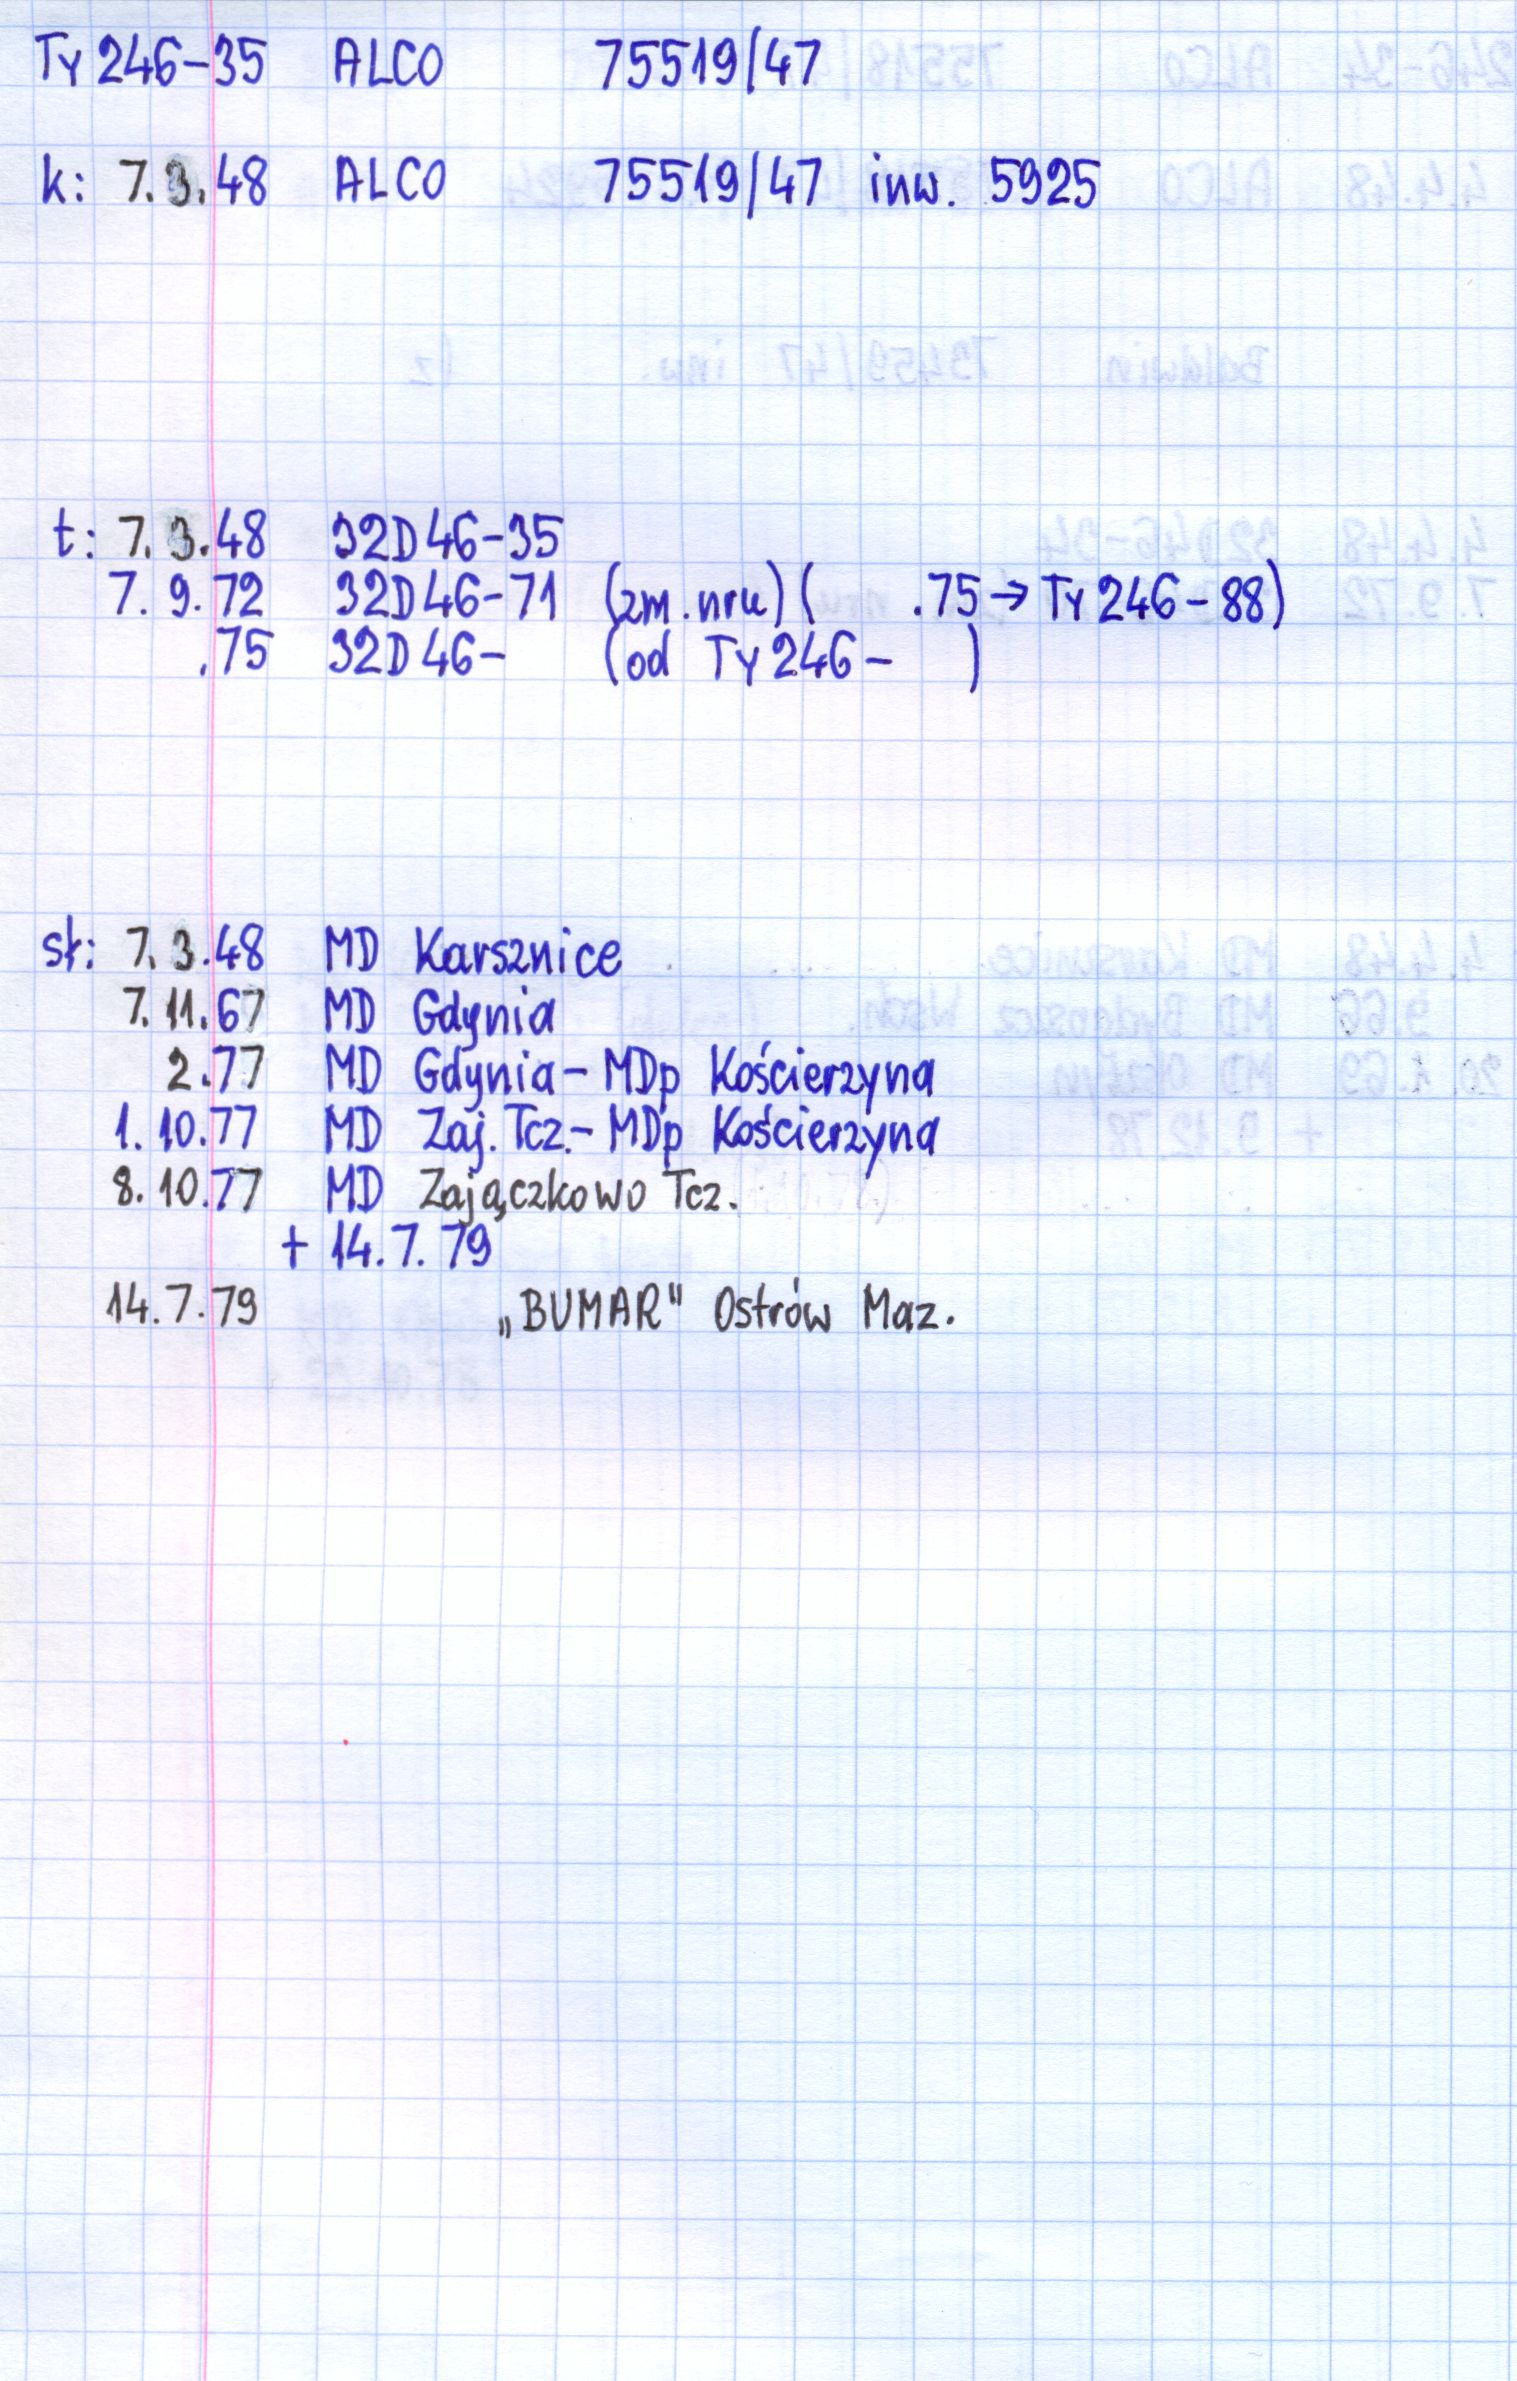 Ty 246-35 ALCO 75519/47
k: 7.3.48 ALCO 75519/47 inw. 5925
t: 7.3.48 32D46-35
7.9.72 32D46-71 (zm. nru) ( .75 → Ty 246-88)
.75 32D46- (od Ty 246- )
sł: 7.3.48 MD Karsznice
7.11.67 MD Gdynia
2.77 MD Gdynia - MDp Kościerzyna
1.10.77 MD Zaj. Tcz. - MDp Kościerzyna
8.10.77 MD Zajączkowo Tcz.
+ 14.7.79
14.7.79 „BUMAR" Ostrów Maz.